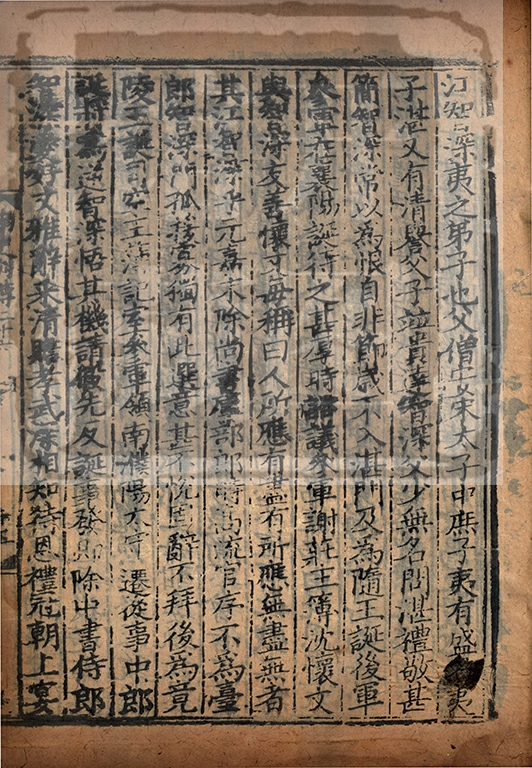 江智深夷之弟子也父僧安宋太子中庶子夷有盛夷
子湛又有清譽父子並貴達智深父少無名問湛禮敬甚
簡智深常以為恨自非節歲不入湛門及為隨王誕後軍
參軍在襄陽誕待之甚厚時諮議參軍謝莊主簿沈懷文
與智深友善懷文每稱曰人所應有盡有所應無盡無者
其江智深乎元嘉末除尚書庫部郎時高流官序不為臺
郎智深門孤援寡獨有此選意甚不悅固辭不拜後為竟
陵王誕司空主簿記室參軍領南濮陽太守遷從事中郎
誕將為逆智深悟其機請假先反誕事發即除中書侍郎
智深愛好文雅辭采清贍孝武深相知待恩禮冠朝上宴